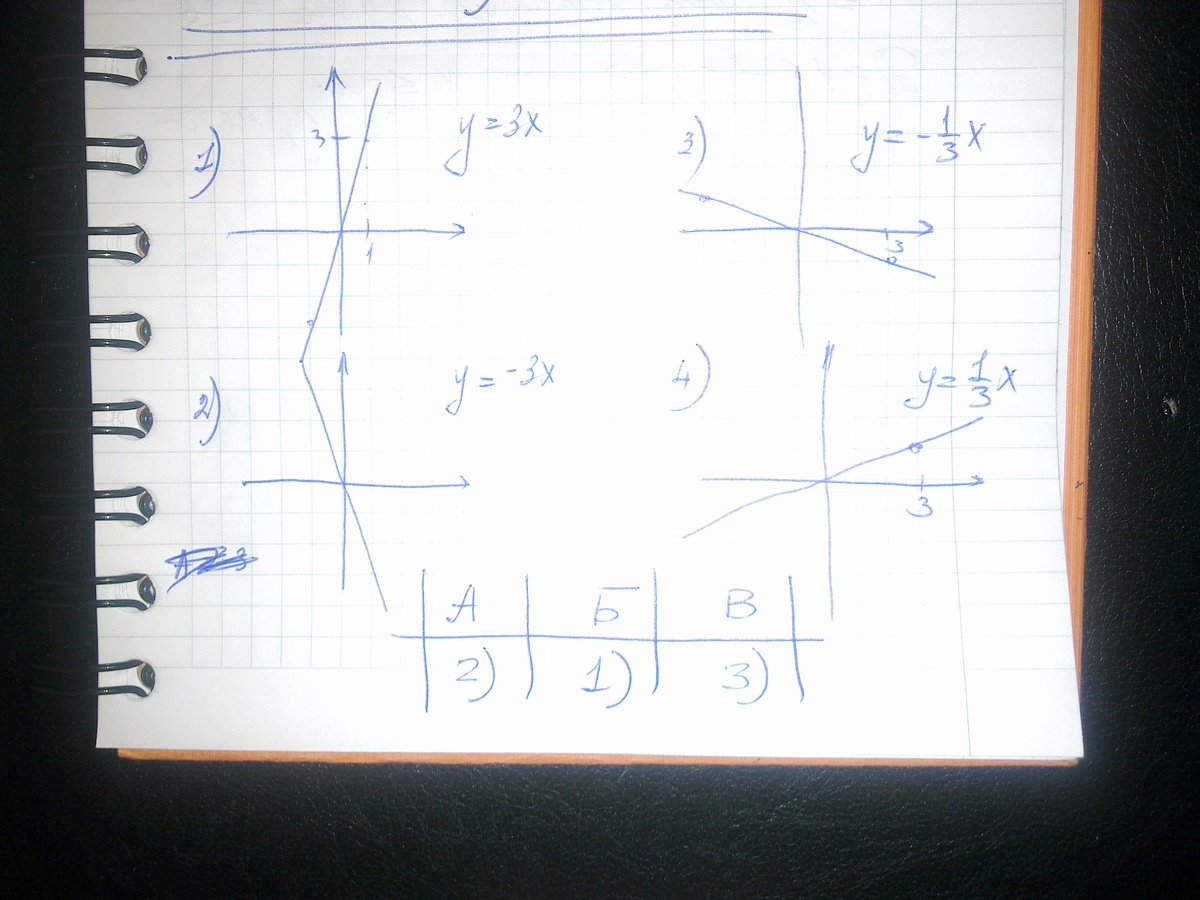 1)
3
1
y = 3x
3)
y = -1/3 x
3
2)
y = -3x
4)
y = 1/3 x
3
А Б В
2) 1) 3)